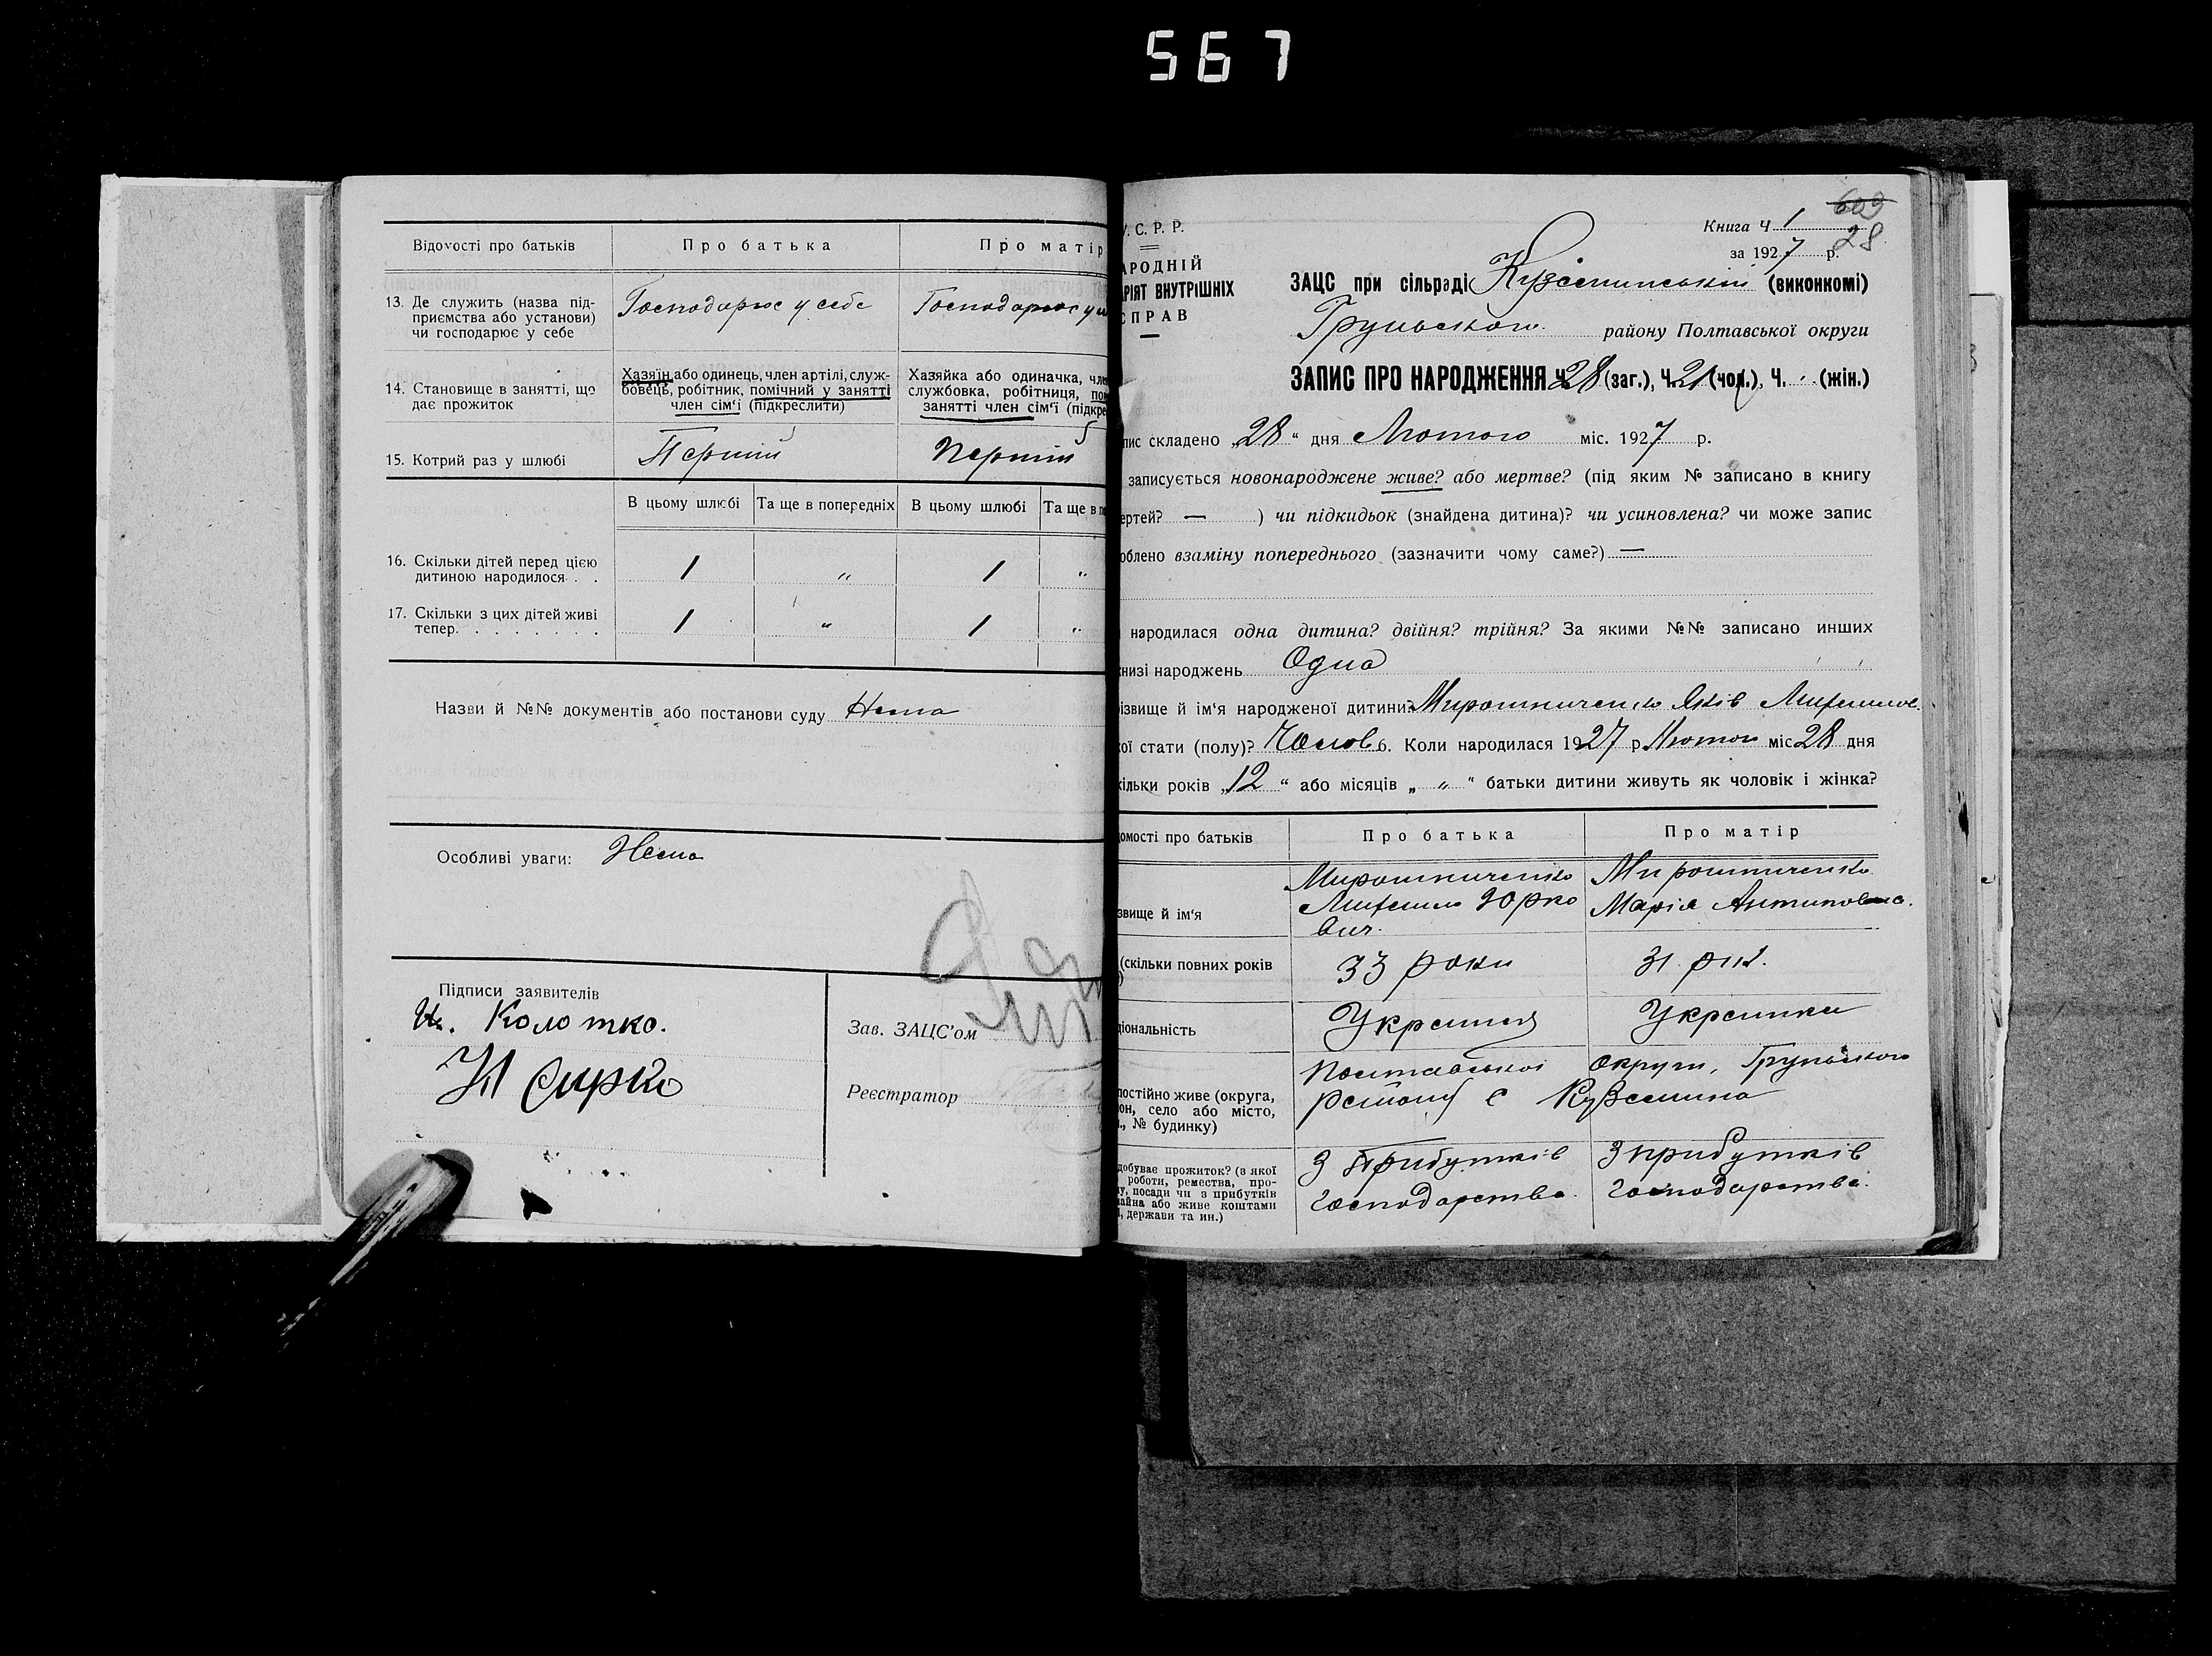 567
Відомості про батьків
Про батька
Про матір
13. Де служить (назва під-
приємства або установи)
чи господарює у себе
Господарює у себе
Господарює у
14. Становище в занятті, що
дає прожиток
Хазяїн або одинець, член артілі, служ-
бовець, робітник, помічний у занятті
член сім'ї (підкреслити)
Хазяйка або одиначка, чле
службовка, робітниця, пом
занятті член сім'ї (підкре
15. Котрий раз у шлюбі
Перший
Перший
В цьому шлюбі
Та ще в попередніх
В цьому шлюбі
Та ще в по
16. Скільки дітей перед цією
дитиною народилося . .
1 " 1 "
17. Скільки з цих дітей живі
тепер. . . . . . . .
1 " 1 "
Назви й №№ документів або постанови суду Нема
Особливі уваги: Нема
Підписи заявителів
Колотко.
Сирко
Зав. ЗАЦС'ом
Реєстратор
609
Книга Ч 1
28
за 1927 р.
У. С. Р. Р.
АРОДНІЙ
АРІЯТ ВНУТРІШНІХ
СПРАВ
ЗАЦС при сільраді Куземинській (виконкомі)
Груньского району Полтавської округи
ЗАПИС ПРО НАРОДЖЕННЯ Ч. 28 (заг.), Ч. 21 (чол.), Ч. (жін.)
пис складено „28“ дня Лютого міс. 1927 р.
записується новонароджене живе? або мертве? (під яким № записано в книгу
ертей? — ) чи підкидьок (знайдена дитина)? чи усиновлена? чи може запис
облено взаміну попереднього (зазначити чому саме?) —
народилася одна дитина? двійня? трійня? За якими №№ записано инших
низі народжень Одна
ізвище й ім'я народженої дитини? Мирошниченко Яків Михайлов.
ої стати (полу)? Чолов. 6. Коли народилася 1927 р Лютого міс 28 дня
кільки років „12“ або місяців „ " “ батьки дитини живуть як чоловік і жінка?
домості про батьків
Про батька
Про матір
звище й ім'я
Мирошниченко
Михайло Юрко
вич.
Мирошниченко
Марія Антиповна.
(скільки повних років
)
33 роки
31 рік.
ціональність
Українець
Українка
постійно живе (округа,
он, село або місто,
., № будинку)
Полтавської округи, Груньского
району с Куземина
добуває прожиток? (з якої
роботи, ремества, про-
у, посади чи з прибутків
майна або живе коштами
, держави та ин.)
З прибутків
господарства.
З прибутків
господарства.